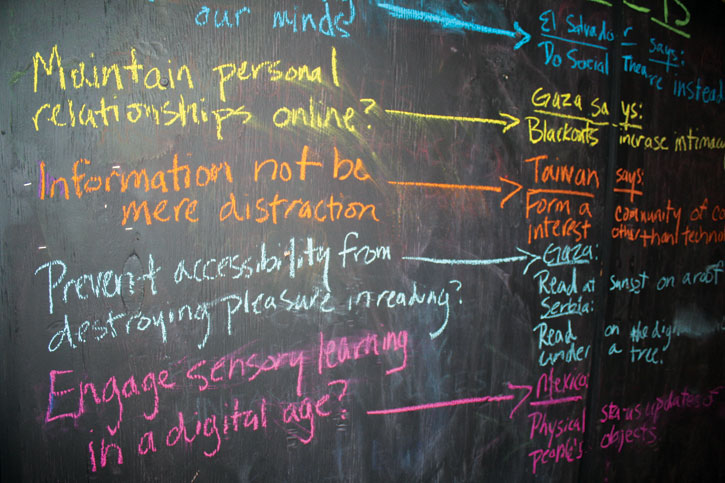 our minds?
El Salvador says:
Do Social Theatre instead
Maintain personal
relationships online?
Gaza says:
Blackouts increase intimac
Information not be
mere distraction
Taiwan says:
Form a community of co
interest other than technol
Prevent accessibility from
destroying pleasure in reading?
Gaza:
Read at sunset on a roof
Serbia:
Read on the
under a tree.
Engage sensory learning
in a digital age?
Mexico
Physical status updates of
people's objects